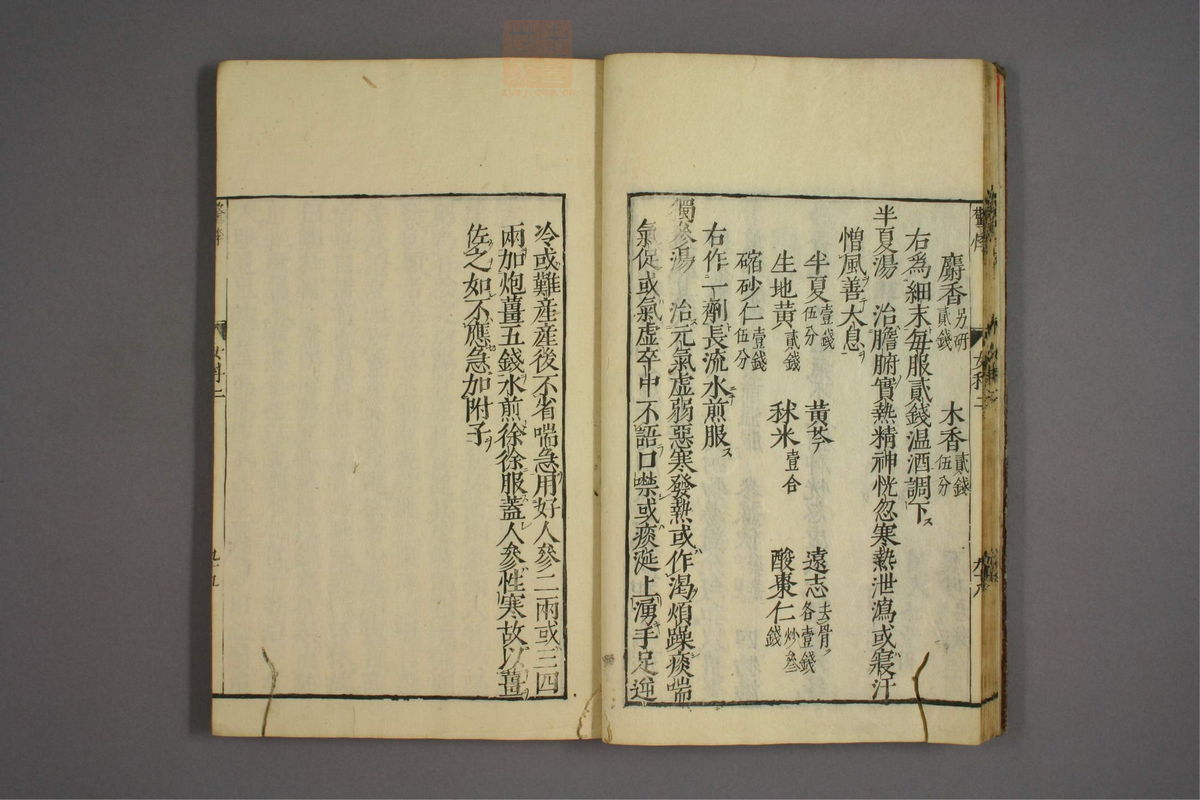 麝香另研貳錢 木香貳錢伍分
右為細末每服貳錢温酒調下ス
半夏湯 治膽腑實熱精神恍忽寒熱泄瀉或寢汗
憎風善大息
半夏壹錢伍分 黃芩 遠志去骨各壹錢
生地黃貳錢 秫米壹合 酸棗仁炒叁錢
縮砂仁壹錢伍分
右作一劑長流水煎服ス
獨參湯 治元氣虛弱惡寒發熱或作渴煩躁痰喘
氣促或氣虛卒中不語口噤或痰涎上湧手足逆
冷或難産産後不省喘急用好人參二兩或三四
兩加炮薑五錢水煎徐徐服蓋人參性寒故以薑
佐之如不應急加附子